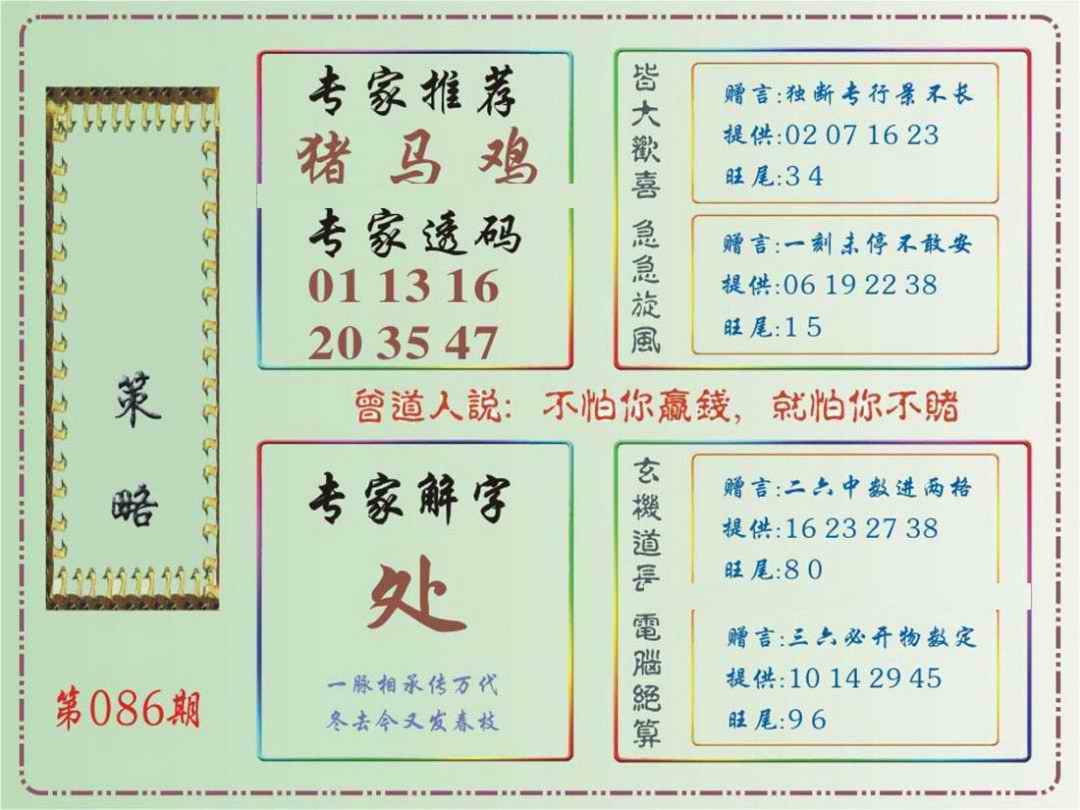 策略
第086期
专家推荐
猪 马 鸡
专家透码
01 13 16
20 35 47
皆大歡喜
赠言:独断专行景不长
提供:02 07 16 23
旺尾:3 4
急急旋風
赠言:一刻未停不敢安
提供:06 19 22 38
旺尾:1 5
曾道人説: 不怕你贏錢, 就怕你不賭
专家解字
处
一脉相承传万代
冬去今又发春枝
玄機道長
赠言:二六中数进两格
提供:16 23 27 38
旺尾:8 0
電腦絕算
赠言:三六必开物数定
提供:10 14 29 45
旺尾:9 6